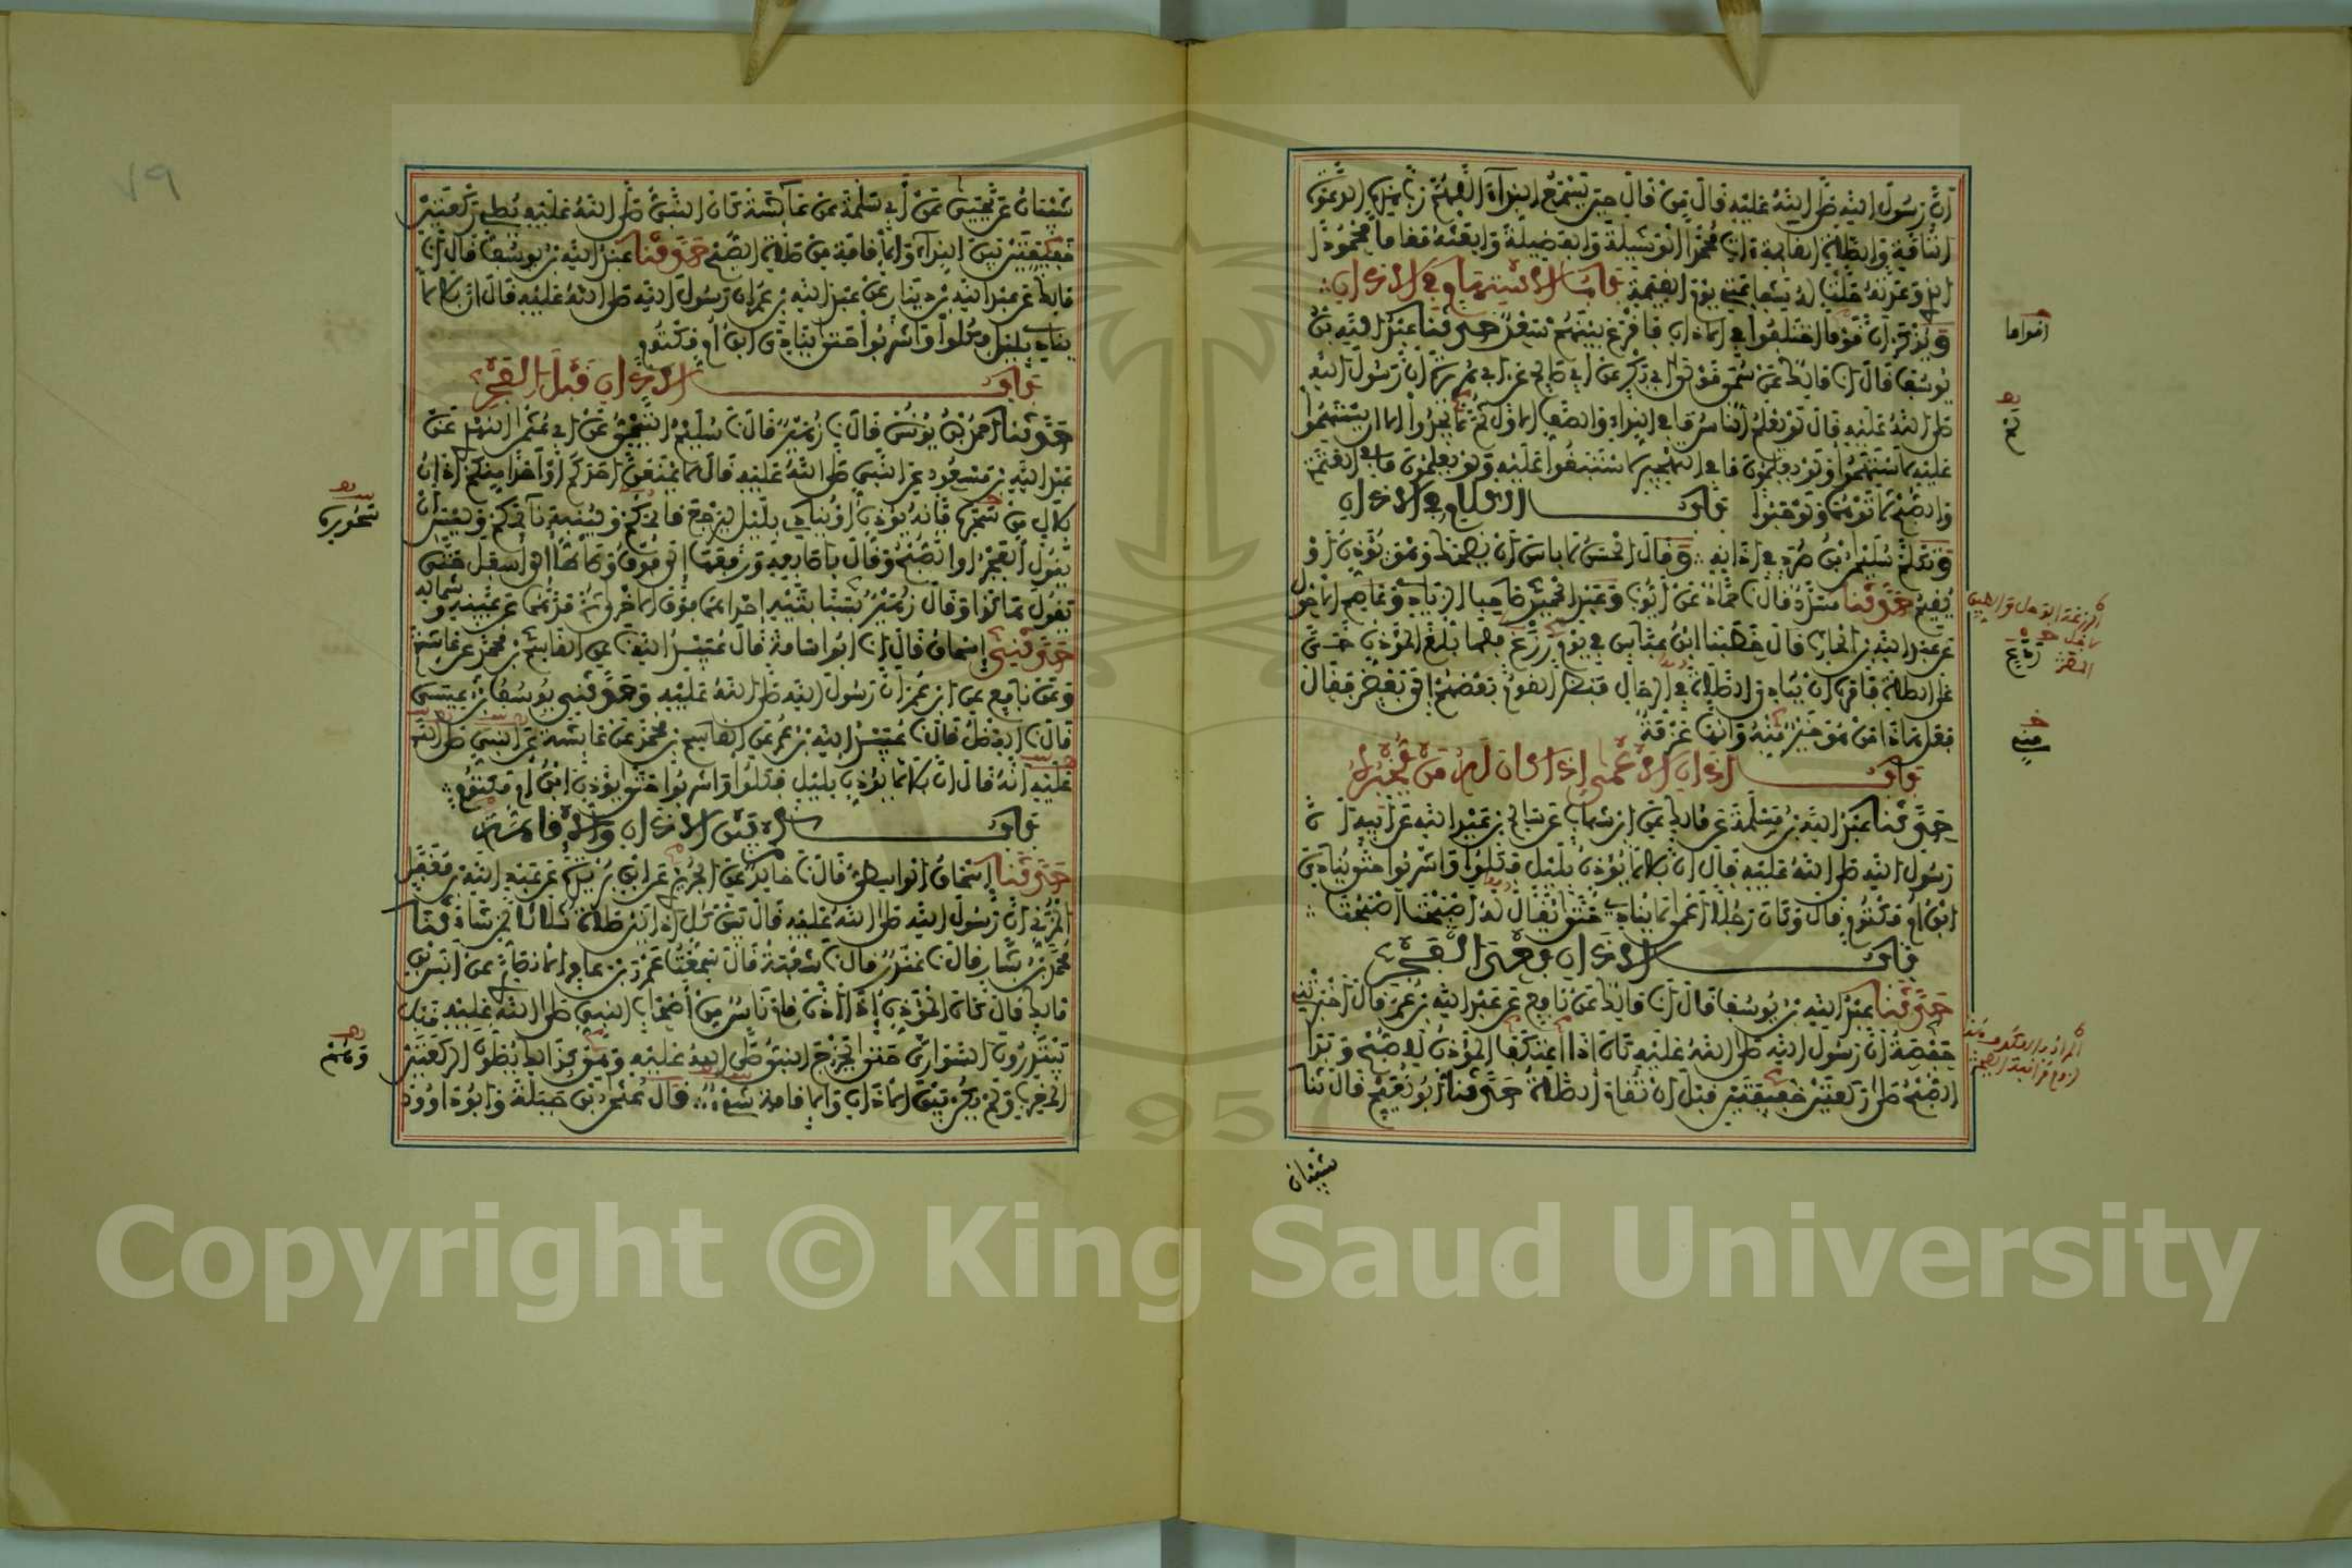 أن رسول الله صلى الله عليه قال من قال حين يسمع النداء اللهم رب هذه الدعوة
التامة والصلاة القائمة ات محمدا الوسيلة والفضيلة وابعثه مقاما محمودا
الذي وعدته حلت له شفاعتي يوم القيمة باب الاستهام في الاذان
ويذكر ان قوما اختلفوا في الاذان فاقرع بينهم سعد حدثنا عبد الله بن
يوسف قال انا مالك عن سمي مولى ابي بكر عن ابي صالح عن ابي هريرة ان رسول الله
صلى الله عليه قال لو يعلم الناس ما في النداء والصف الاول ثم لا يجدوا الا ان يستهموا
عليه لاستهموا ولو يعلمون ما في التهجير لاستبقوا عليه ولو يعلمون ما في العتمة
والصبح لاتوهما ولو حبوا باب الكلام في الاذان
وتكلم سليمن بن صرد في اذانه وقال الحسن لا باس ان يضحك وهو يؤذن او
يقيم حدثنا مسدد قال نا حماد عن ايوب وعبد الحميد صاحب الزيادي وعاصم الاحول
عن عبد الله بن الحارث قال خطبنا ابن عباس في يوم رزغ فلما بلغ المؤذن حي
على الصلاة فامره ان ينادي الصلاة في الرحال فنظر القوم بعضهم الى بعض فقال
فعل هذا من هو خير منه وانها عزمة
باب اذان الاعمى اذا كان له من يخبره
حدثنا عبد الله بن مسلمة عن مالك عن ابن شهاب عن سالم بن عبد الله عن ابيه ان
رسول الله صلى الله عليه قال ان بلالا يؤذن بليل فكلوا واشربوا حتى ينادي
ابن ام مكتوم قال وكان رجلا اعمى لا ينادي حتى يقال له اصبحت اصبحت
باب الاذان بعد الفجر
حدثنا عبد الله بن يوسف قال انا مالك عن نافع عن عبد الله بن عمر قال اخبرتني
حفصة ان رسول الله صلى الله عليه كان اذا اعتكف المؤذن للصبح وبدا
الصبح صلى ركعتين خفيفتين قبل ان تقام الصلاة حدثنا ابو نعيم قال نا
شيبان
شيبان عن يحيى عن ابي سلمة عن عائشة كان النبي صلى الله عليه يصلي ركعتين
خفيفتين بين النداء والاقامة من صلاة الصبح حدثنا عبد الله بن يوسف قال انا
مالك عن عبد الله بن دينار عن عبد الله بن عمر ان رسول الله صلى الله عليه قال ان بلالا
ينادي بليل فكلوا واشربوا حتى ينادي ابن ام مكتوم
باب الاذان قبل الفجر
حدثنا احمد بن يونس قال نا زهير قال نا سليمن التيمي عن ابي عثمن النهدي عن
عبد الله بن مسعود عن النبي صلى الله عليه قال لا يمنعن احدكم او احدا منكم اذان
بلال من سحوره فانه يؤذن او ينادي بليل ليرجع قائمكم ولينبه نائمكم وليس ان
يقول الفجر او الصبح وقال باصابعه ورفعها الى فوق وطاطا الى اسفل حتى
يقول هكذا وقال زهير بسبابتيه احداهما فوق الاخرى ثم مدهما عن يمينه وشماله
حدثني اسحاق قال انا ابو اسامة قال عبيد الله نا عن القاسم بن محمد عن عائشة
وعن نافع عن ابن عمر ان رسول الله صلى الله عليه وحدثني يوسف بن عيسى
قال نا الفضل قال نا عبيد الله بن عمر عن القاسم بن محمد عن عائشة عن النبي صلى الله
عليه انه قال ان بلالا يؤذن بليل فكلوا واشربوا حتى يؤذن ابن ام مكتوم
باب كم بين الاذان والاقامة
حدثنا اسحاق الواسطي قال نا خالد عن الجريري عن ابن بريدة عن عبد الله بن مغفل
المزني ان رسول الله صلى الله عليه قال بين كل اذانين صلاة ثلاثا لمن شاء حدثنا
محمد بن بشار قال نا غندر قال نا شعبة قال سمعت عمرو بن عامر الانصاري عن انس بن
مالك قال كان المؤذن اذا اذن قام ناس من اصحاب النبي صلى الله عليه
يبتدرون السواري حتى يخرج النبي صلى الله عليه وهو كذلك يصلون الركعتين
المغرب ولم يكن بين الاذان والاقامة شيء قال عثمن بن جبلة وابو داوود
سحوره
Copyright © King Saud University
1957
٧٩